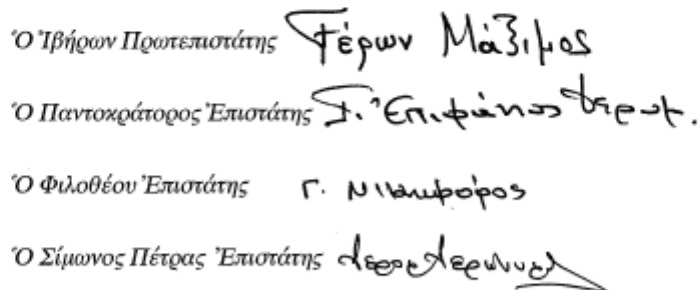 Ὁ Ἰβήρων Πρωτεπιστάτης Γέρων Μάξιμος
Ὁ Παντοκράτορος Ἐπιστάτης Γ. Ἐπιφάνιος
Ὁ Φιλοθέου Ἐπιστάτης Γ. Νικηφόρος
Ὁ Σίμωνος Πέτρας Ἐπιστάτης